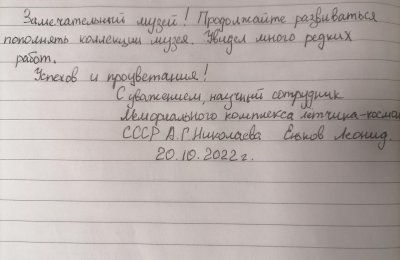 Замечательный музей! Продолжайте развиваться
пополнять коллекции музея. Увидел много редких
работ.
Успехов и процветания!
С уважением, научный сотрудник
Мемориального комплекса летчика-космо
СССР А.Г. Николаева Еньков Леонид.
20.10.2022 г.